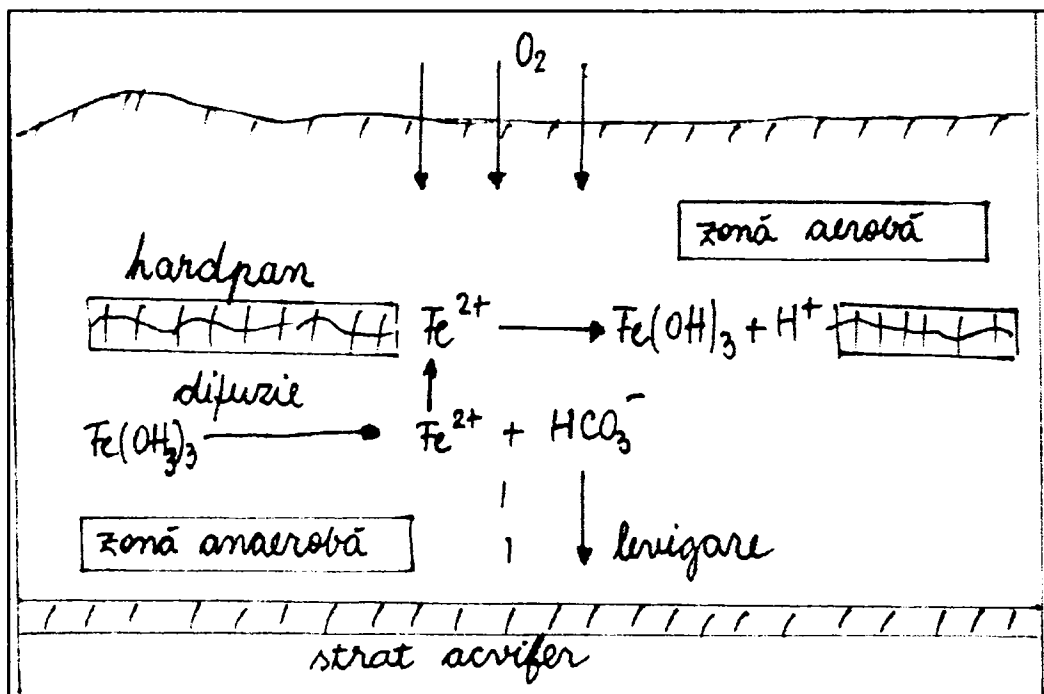 O₂
zonă aerobă
hardpan
Fe²⁺ → Fe(OH)₃ + H⁺
difuzie
Fe(OH₃)₃ → Fe²⁺ + HCO₃⁻
zonă anaerobă
levigare
strat acvifer